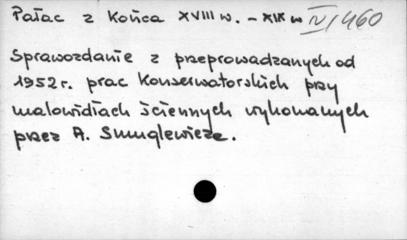 Pałac z końca XVIII w. - XIX w IV/460
Sprawozdanie z przeprowadzanych od
1952 r. prac Konserwatorskich przy
malowidłach ściennych wykonanych
przez A. Smuglewicza.